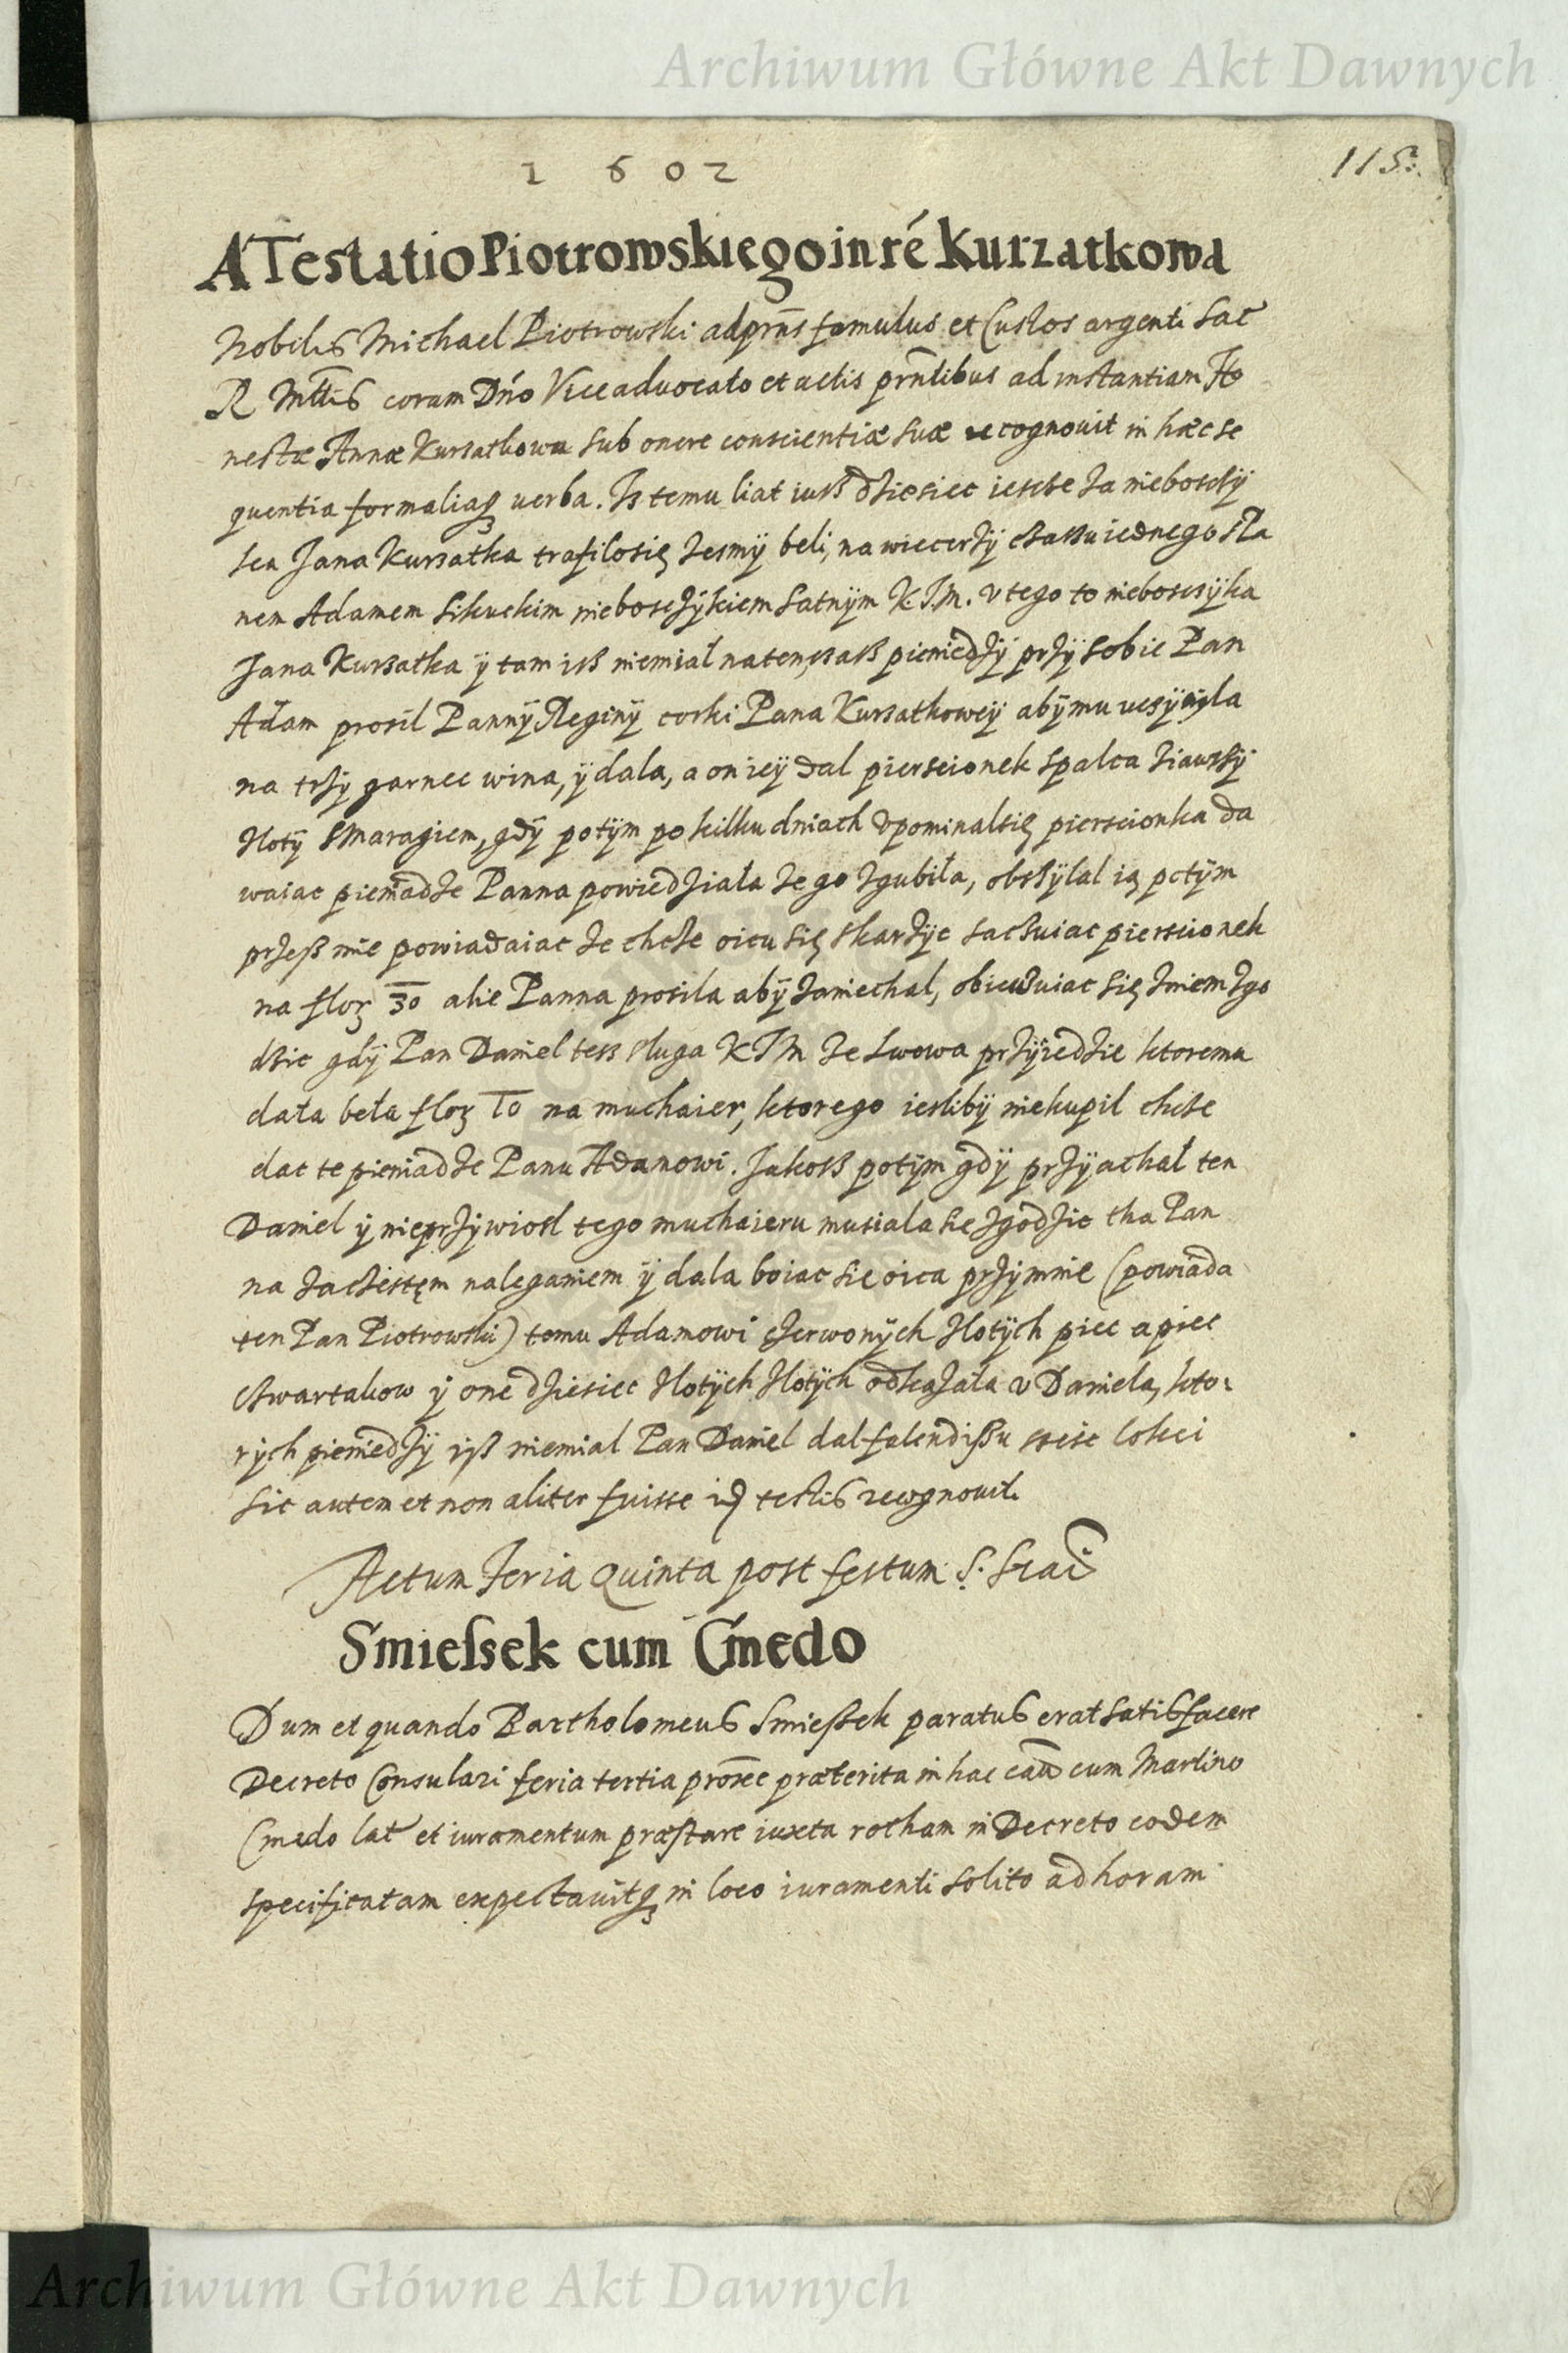 Archiwum Główne Akt Dawnych
1602
115.
ATestatio Piotrowskiego in ré Kurzatkowa
Nobilis Michael Piotrowski ad prñs famulus et Custos argenti Sac
R Mttis coram Dńo Viceadvocato et actis prñtibus ad instantiam Ho
nestæ Annæ Kursatkowa sub onere conscientiæ suæ recognovit in hæc se
quentia formaliaq verba. Iz temu liat iusß dziesiec iescze za nieboscżÿ
ka Jana Kursatka trafilo się żesmÿ beli, na wieczerżÿ czassu iednego s Pa
nem Adamem Sikuckim nieboscżÿkiem Satnÿm K.J.M. v tego to nieboscsÿka
Jana Kursatka ÿ tam isß niemiał natenczasß pieniedzÿ przÿ sobie Pan
Adam prosil Pannÿ Reginÿ corki Pana Kursatkoweÿ abÿ mu
na trzÿ garnce wina, ÿ dala, a on ieÿ dal pierscionek s palca
złotÿ smaragiem, gdÿ potÿm po kilku dniach vpominal się pierscionka da
waiac pieniadze Panna powiedziała że go zgubiła, obsÿlal ią potÿm
przesß mie powiadaiac że chcze oicu się skarżÿc sacsuiac pierscionek
na flor 30 alie Panna prosila abÿ zaniechal, obiecsuiac się z niem zgo
dzic gdÿ Pan Daniel tess sluga KJM ze Lwowa przÿiedzie ktoremu
data beła flor 10 na muchaier, ktorego iesliby niekupil chcze
dac te pieniadze Panu Adamowi. Jakosß potÿm gdÿ przÿachał ten
Daniel ÿ nieprzÿwiosl tego muchaieru musiala sie zgodzic tha Pan
na za czestem naleganiem ÿ dala boiac sie oica przÿ mnie (powiada
ten Pan Piotrowski) temu Adamowi czerwonÿch złotÿch piec a piec
czwartakow ÿ one dziesiec złotÿch złotÿch odkazała v Daniela, kto
rÿch pieniedzÿ isß niemial Pan Daniel dal falendissu lokci
sic autem et non aliter fuisse id testis recognovit.
Actum Feria Quinta post festum S. Stai
Smiefsek cum Cmedo
Dum et quando Bartholomeus Smiesßek paratus erat satisfacere
Decreto Consulari feria tertia proxe præterita in hac caũ cum Martino
Cmedo lat et iuramentum præstare iuxta rotham in Decreto eodem
specificatam expectavitq in loco iuramenti solito ad horam
Archiwum Główne Akt Dawnych